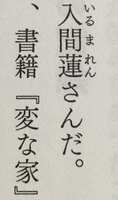 入間蓮さんだ。
いるまれん
、書籍『変な家』